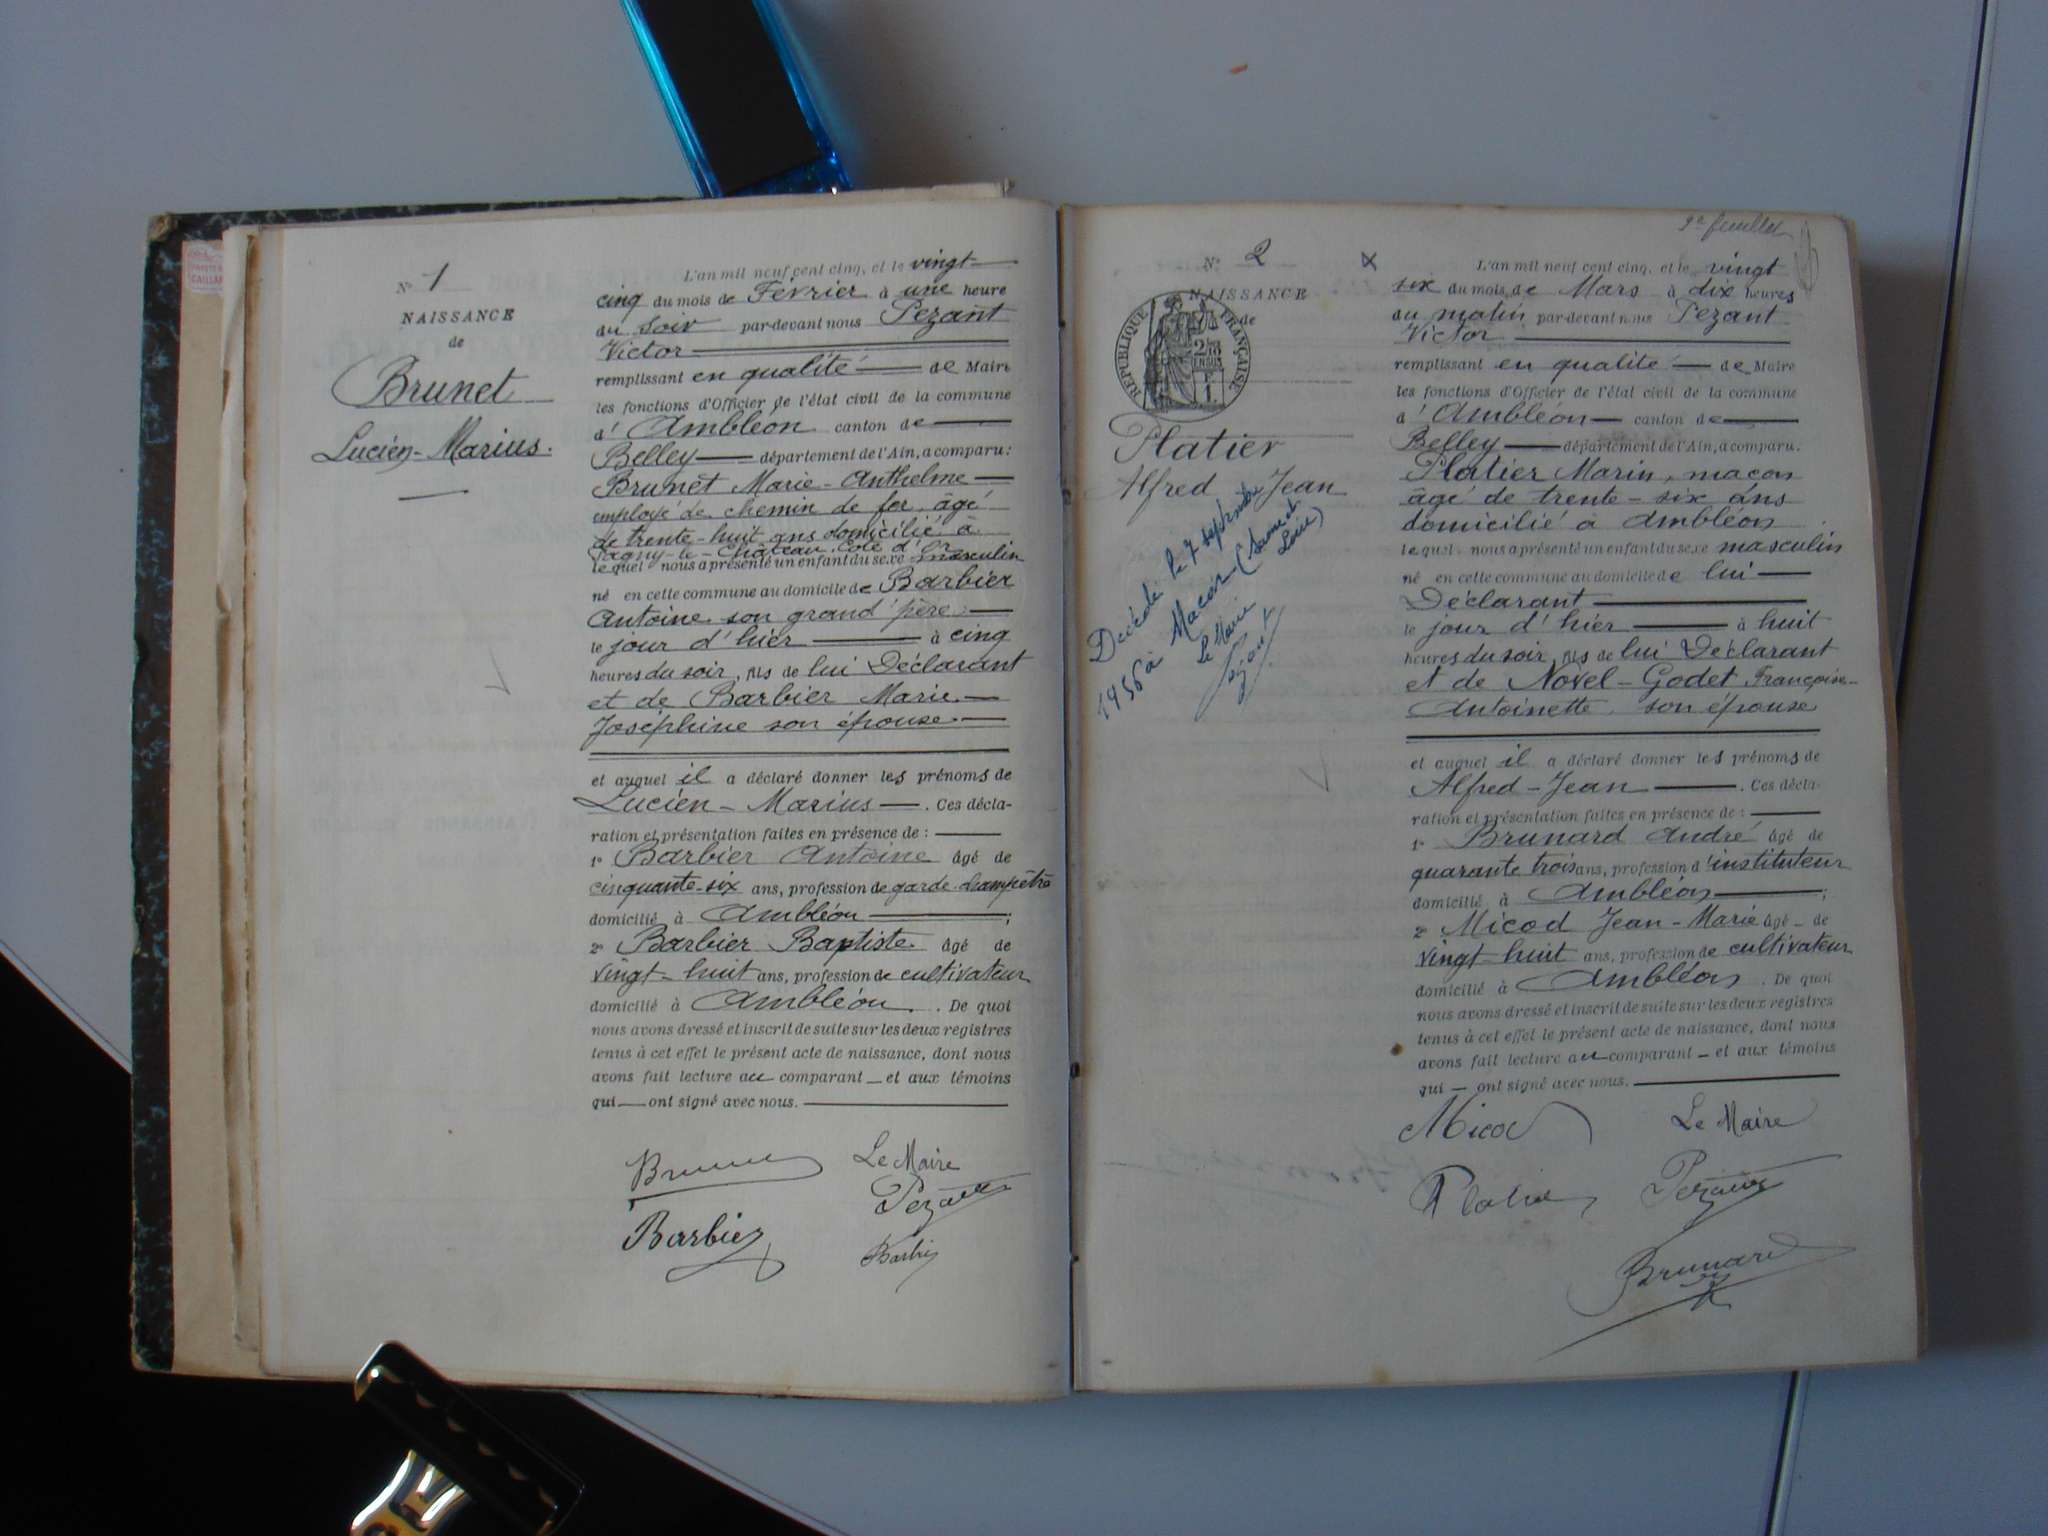 N° 1
NAISSANCE
de
Brunet
Lucien-Marius.
L'an mil neuf cent cinq, et le vingt
cinq du mois de Février à une heure
du soir par-devant nous Pezant
Victor
remplissant en qualité de Maire
les fonctions d'Officier de l'état civil de la commune
d' Ambléon canton de
Belley département de l'Ain, a comparu:
Brunet Marie-Anthelme
employé de chemin de fer, âgé
de trente-huit ans domicilié à
Pagny-le-Château, Côte d'Or
lequel nous a présenté un enfant du sexe masculin
né en cette commune au domicile de Barbier
Antoine son grand'père
le jour d'hier à cinq
heures du soir, fils de lui Déclarant
et de Barbier Marie
Joséphine son épouse.
et auquel il a déclaré donner les prénoms de
Lucien-Marius. Ces décla-
ration et présentation faites en présence de :
1° Barbier Antoine âgé de
cinquante-six ans, profession de garde-champêtre
domicilié à Ambléon ;
2° Barbier Baptiste âgé de
vingt-huit ans, profession de cultivateur
domicilié à Ambléon. De quoi
nous avons dressé et inscrit de suite sur les deux registres
tenus à cet effet le présent acte de naissance, dont nous
avons fait lecture au comparant et aux témoins
qui ont signé avec nous.
Brunet Le Maire
Pezant
Barbier Barbier
9e feuillet
N° 2
NAISSANCE
de
RÉPUBLIQUE FRANÇAISE
Platier
Alfred Jean
Décédé le 7 septembre
1956 à Macon (Saone et
Loire)
Le Maire
L'an mil neuf cent cinq, et le vingt
six du mois de Mars à dix heures
du matin par-devant nous Pezant
Victor
remplissant en qualité de Maire
les fonctions d'Officier de l'état civil de la commune
d' Ambléon canton de
Belley département de l'Ain, a comparu.
Platier Marin, maçon
âgé de trente-six ans
domicilié à Ambléon
lequel nous a présenté un enfant du sexe masculin
né en cette commune au domicile de lui
Déclarant
le jour d'hier à huit
heures du soir, fils de lui Déclarant
et de Novel-Godet Françoise-
Antoinette son épouse
et auquel il a déclaré donner les prénoms de
Alfred-Jean. Ces décla-
ration et présentation faites en présence de :
1° Brunard André âgé de
quarante trois ans, profession d'instituteur
domicilié à Ambléon ;
2° Micod Jean-Marie âgé de
vingt-huit ans, profession de cultivateur
domicilié à Ambléon. De quoi
nous avons dressé et inscrit de suite sur les deux registres
tenus à cet effet le présent acte de naissance, dont nous
avons fait lecture au comparant et aux témoins
qui ont signé avec nous.
Micod Le Maire
Platier Pezant
Brunard